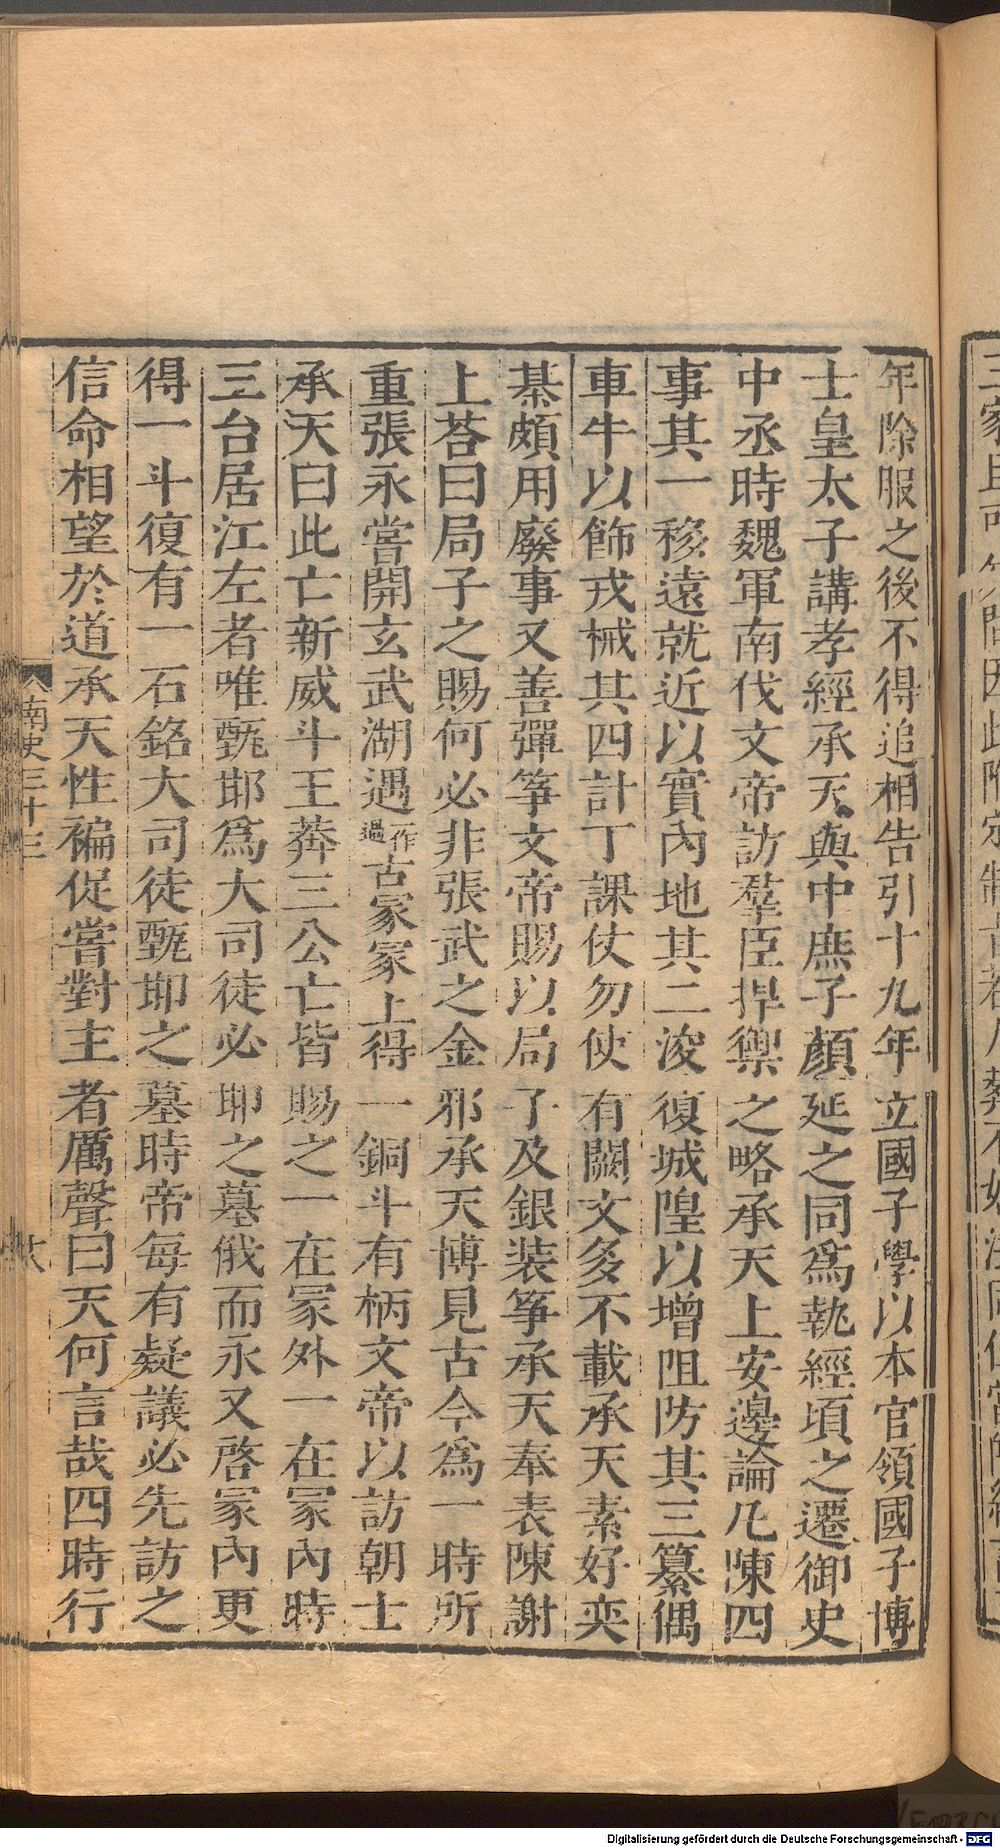 年除服之後不得追相告引十九年立國子學以本官領國子博
士皇太子講孝經承天與中庶子顏延之同爲執經頃之遷御史
中丞時魏軍南伐文帝訪羣臣捍禦之略承天上安邊論凡陳四
事其一移遠就近以實內地其二浚復城隍以增阻防其三纂偶
車牛以飾戎械其四計丁課仗勿使有闕文多不載承天素好奕
棊頗用廢事又善彈箏文帝賜以局子及銀装箏承天奉表陳謝
上荅曰局子之賜何必非張武之金邪承天博見古今爲一時所
重張永嘗開玄武湖遇一作過古冢冢上得一銅斗有柄文帝以訪朝士
承天曰此亡新威斗王莽三公亡皆賜之一在冢外一在冢內時
三台居江左者唯甄邯爲大司徒必邯之墓俄而永又啓冢內更
得一斗復有一石銘大司徒甄邯之墓時帝每有疑議必先訪之
信命相望於道承天性褊促嘗對主者厲聲曰天何言哉四時行
南史三十三
Digitalisierung gefördert durch die Deutsche Forschungsgemeinschaft - DFG